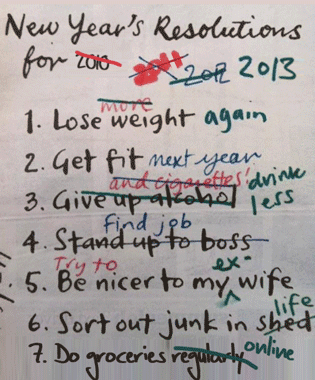 New Year's Resolutions
for 2010 2011 2012 2013
more
1. Lose weight again
2. Get fit next year
and cigarettes! drink
3. Give up alcohol less
find job
4. Stand up to boss
Try to ex-
5. Be nicer to my wife
life
6. Sort out junk in shed
7. Do groceries regularly online